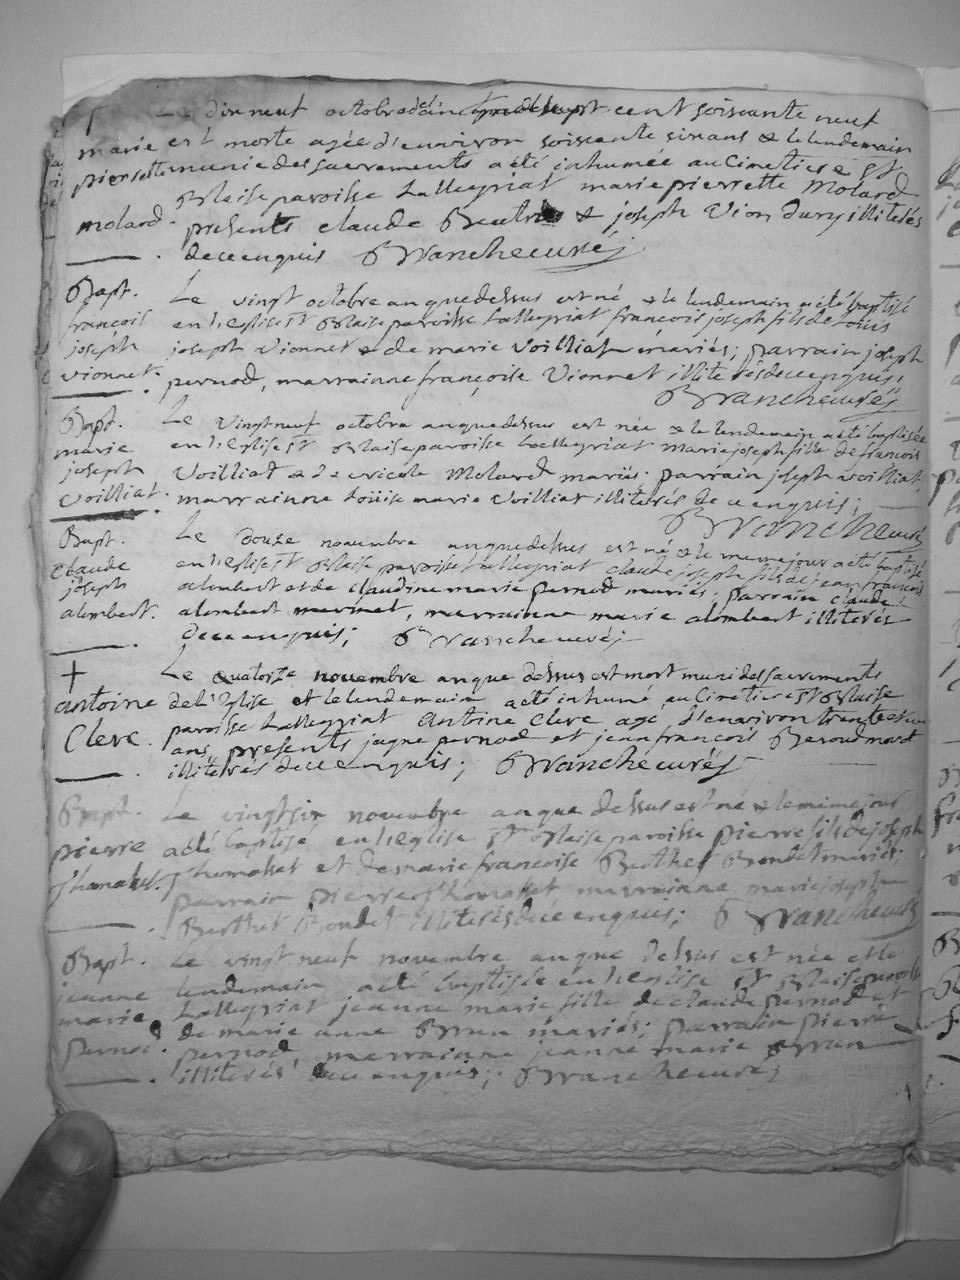 † Le dix neuf octobre mil sept cent soixante neuf
marie est morte agée d'environ soissente sixans & le lendemain
pierrette munie des sacrements a été inhumée au Cimetiere St
Blaise paroisse Lalleyriat marie pierrette Molard
molard. présents claude & joseph Vion dury illiterés
de ce enquis Branche curé
Bapt. Le vingt octobre an que dessus est né & le lendemain a été baptisé
françois en l'Eglise St Blaise paroisse Lalleyriat françois joseph fils de Louis
joseph joseph vionnet & de marie Voilliat mariés; parrain joseph
vionnet. pernod, marrainne françoise Vionnet illiterés de ce enquis;
Branche curé
Bapt. Le vingt neuf octobre an que dessus est née & le lendemain a été baptisée
marie en l'Eglise St Blaise paroisse Lalleyriat Marie joseph fille de francois
joseph Voilliat & de Molard mariés parrain joseph voilliat,
Voilliat. marrainne Louise marie Voilliat illiterés de ce enquis;
Branche curé
Bapt. Le Douze novembre an que dessus est né & le meme jour a été baptisé
claude en l'Eglise St Blaise paroisse Lalleyriat claude joseph fils de jean francois
joseph alombert et de claudine marie pernod mariés; parrain claude
alombert. alombert mermet, marrainne marie alombert illiterés
de ce enquis; Branche curé
† Le quatorze novembre an que dessus est mort muni des sacrements
antoine de l'Eglise et le lendemain a été inhumé au Cimetiere St Blaise
Clerc. paroisse Lalleyriat Antoine Clerc age d'environ trente et un
ans, présents jaque pernod et jean francois Beroud
illiterés de ce enquis; Branche curé
Bapt. Le vingt six novembre an que dessus est né & le mime jour
pierre a été baptisé en l'Eglise St Blaise paroisse pierre fils de joseph
thomasset. thomasset et de marie francoise Berthet Bondet mariés;
parrain pierre thomasset marrainne marie joseph
Berthet Bondet illiterés de ce enquis; Branche curé
Bapt. Le vingt neuf novembre an que dessus est née et le
jeanne lendemain a été baptisée en l'Eglise St Blaise paroisse
marie Lalleyriat jeanne marie fille de claude pernod et
pernod. de marie anne Brun mariés; parrain pierre
pernod, marrainne jeanne marie Brun
illiterés de ce enquis; Branche curé